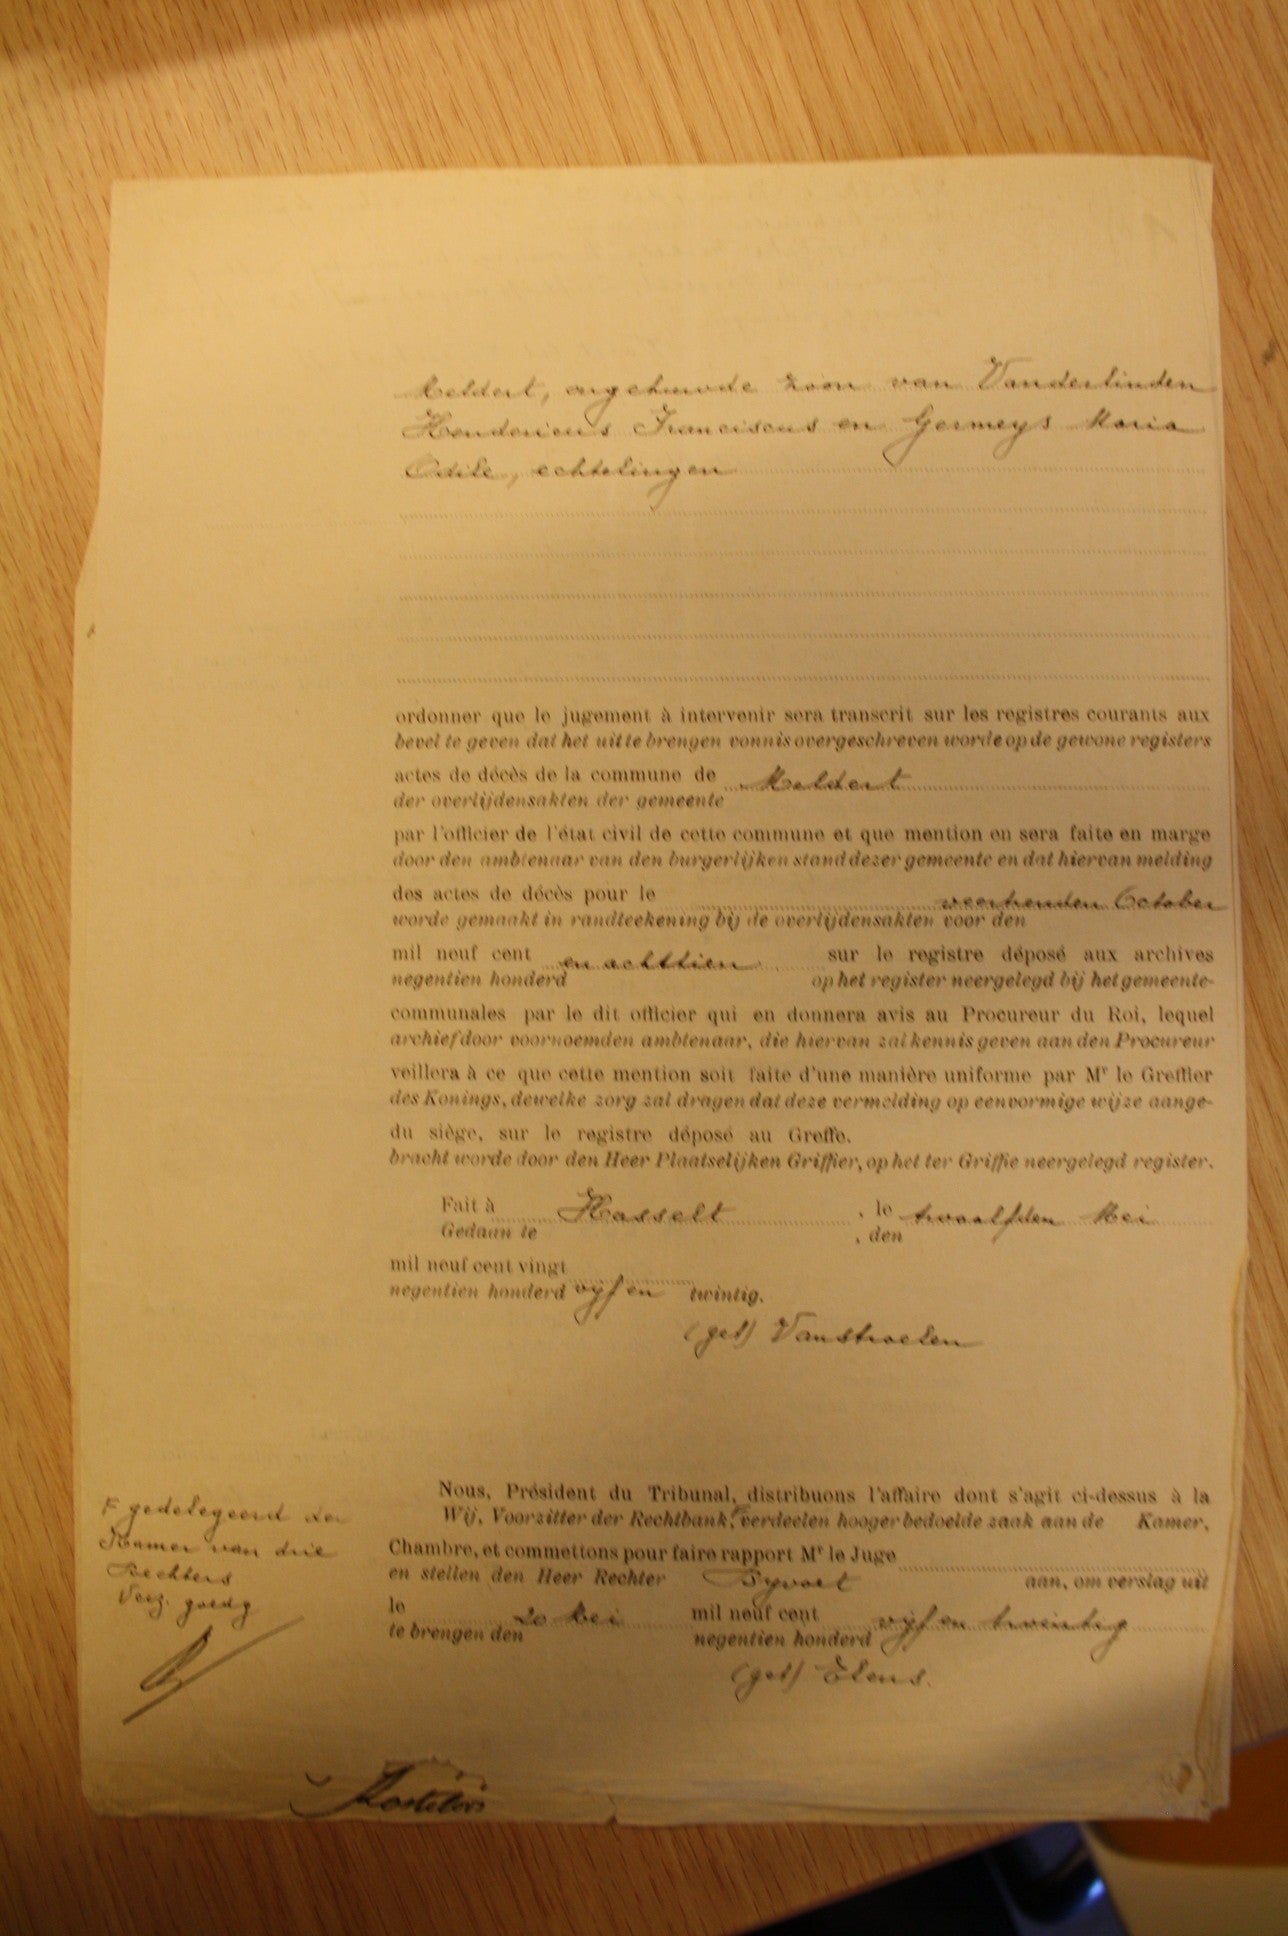 Meldert, ongehuwde zoon van Vanderlinden
Hendericus Franciscus en Germeys Maria
Odile, echtelingen
ordonner que le jugement à intervenir sera transcrit sur les registres courants aux
bevel te geven dat het uit te brengen vonnis overgeschreven worde op de gewone registers
actes de décès de la commune de Meldert
der overlijdensakten der gemeente
par l'officier de l'état civil de cette commune et que mention en sera faite en marge
door den ambtenaar van den burgerlijken stand dezer gemeente en dat hiervan melding
des actes de décès pour le veertienden October
worde gemaakt in randteekening bij de overlijdensakten voor den
mil neuf cent en achttien sur le registre déposé aux archives
negentien honderd op het register neergelegd bij het gemeente-
communales par le dit officier qui en donnera avis au Procureur du Roi, lequel
archief door voornoemden ambtenaar, die hiervan zal kennis geven aan den Procureur
veillera à ce que cette mention soit faite d'une manière uniforme par Mr le Greffier
des Konings, dewelke zorg zal dragen dat deze vermelding op eenvormige wijze aange-
du siège, sur le registre déposé au Greffe.
bracht worde door den Heer Plaatselijken Griffier, op het ter Griffie neergelegd register.
Fait à Hasselt, le twaalfden Mei
Gedaan te , den
mil neuf cent vingt
negentien honderd vijf en twintig.
(get) Vanstraelen
Nous, Président du Tribunal, distribuons l'affaire dont s'agit ci-dessus à la
Wij, Voorzitter der Rechtbank, verdeelen hooger bedoelde zaak aan de Kamer,
Chambre, et commettons pour faire rapport Mr le Juge
en stellen den Heer Rechter Byvoet aan, om verslag uit
le 20 Mei mil neuf cent vijf en twintig
te brengen den negentien honderd
(get) Elens.
F gedelegeerd der
Kamer van drie
Rechters
Verz. goedg